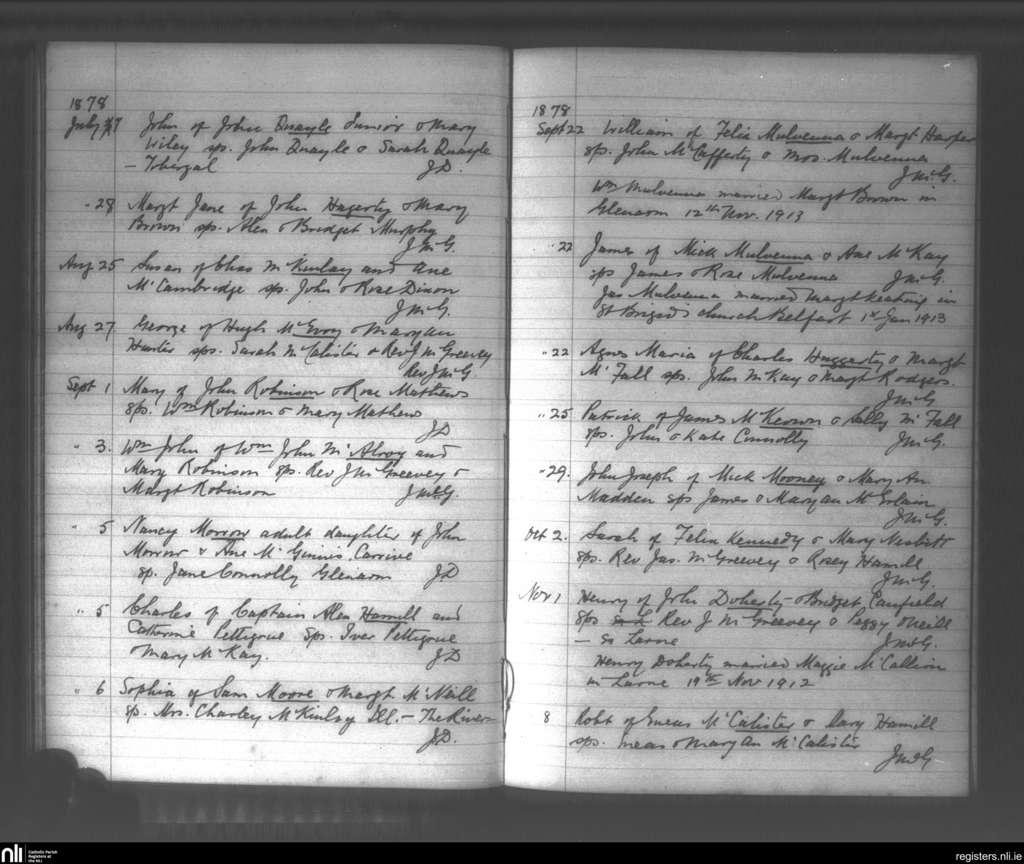 1878
July 7 John of John Quayle Junior & Mary
Wiley sps. John Quayle & Sarah Quayle
– Tobergal J.D.
" 28 Margt Jane of John Hagerty & Mary
Brown sps. Alen & Bridget Murphy
J McG.
Aug 25 Susan of Chas McKinlay and Ane
McCambridge sps. John & Rose Dixon
J McG.
Aug 27 George of Hugh McEvoy & Maryan
Hunter sps. Sarah McCalister & Rev J McGreevey
Rev J McG.
Sept 1 Mary of John Robinson & Rose Mathews
sps. Wm Robinson & Mary Mathews
JD
" 3. Wm John of Wm John McAlroy and
Mary Robinson sps. Rev J McGreevey &
Margt Robinson J McG.
" 5 Nancy Morrow adult daughter of John
Morrow & Ane McGinnis, Carrive
sp. Jane Connolly Glenarm JD
" 5 Charles of Captain Alen Hamill and
Catherine Pettigrue Sps. Iver Pettigrue
& Mary McKay. JD
" 6 Sophia of Sam Moore & Margt McNeill
sp. Mrs. Charley McKinlay Ill. – The River
J.D.
1878
Sept 22 William of Felix Mulvenna & Margt Harper
sps. John McCafferty & Mrs. Mulvenna
J McG.
Wm Mulvenna married Margt Brown in
Glenarm 12th Nov. 1913
" 22 James of Mick Mulvenna & Ane McKay
sps James & Rose Mulvenna J McG.
Jas Mulvenna married Margt Keating in
St Brigids church Belfast 1st Jan 1913
" 22 Agnes Maria of Charles Haggerty & Margt
McFall sps. John McKay & Margt Rodgers.
J McG
" 25 Patrick of James McKeown & Sally McFall
sps. John & Kate Connolly J McG.
" 29. John Joseph of Mick Mooney & Mary An
Madden sps James & Maryan McErlain
J McG.
Oct 2. Sarah of Felix Kennedy & Mary Nesbitt
sps. Rev Jas. McGreevey & Rosey Hamill
J McG.
Nov 1 Henry of John Doherty & Bridget Canfield
sps Rev J McGreevey & Peggy O'Neill
– in Larne J McG.
Henry Doherty married Maggie McCallion
in Larne 19th Nov 1912
8 Robt of Eneas McCalister & Mary Hamill
sps. Eneas & Mary An McCalister
J McG
nli Catholic Parish
Registers at
the NLI
registers.nli.ie